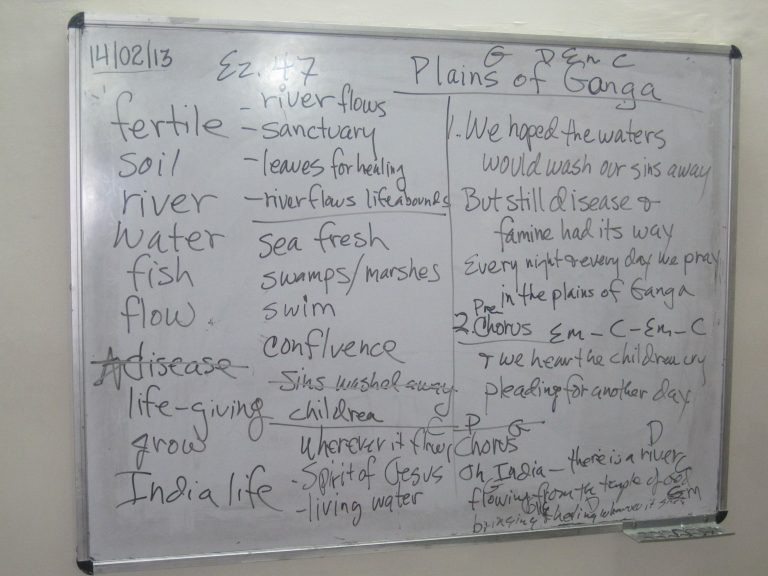 14/02/13
Ez. 47
G D Em C
Plains of Ganga
fertile
soil
river
water
fish
flow
disease
life-giving
grow
India life
- river flows
- sanctuary
- leaves for healing
- river flows life abounds
sea fresh
swamps/marshes
swim
confluence
Sins washed away
children
wherever it flows
- Spirit of Jesus
- living water
1. We hoped the waters
would wash our sins away
But still disease &
famine had its way
Every night & every day we pray
in the plains of Ganga
Pre
2. Chorus Em - C - Em - C
& we hear the children cry
pleading for another day
C D G
Chorus
D
Oh India - there is a river
flowing from the temple of God
bringing healing wherever it